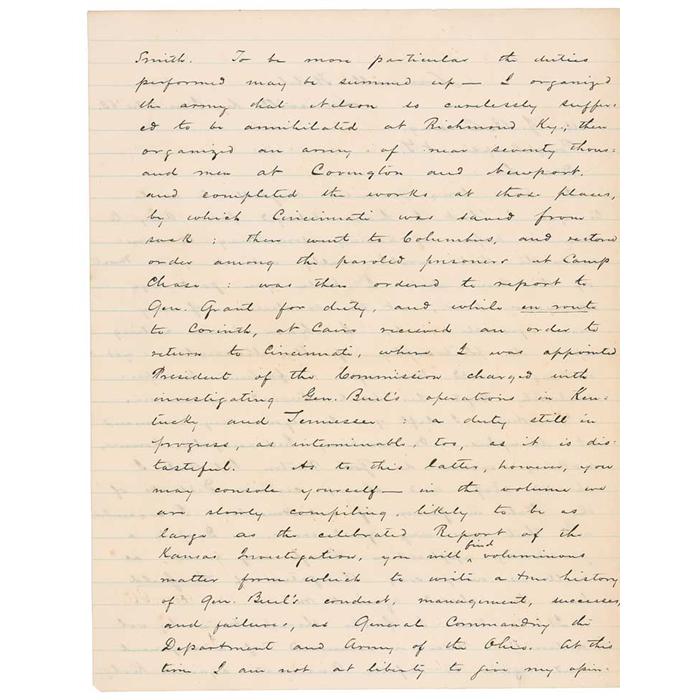 Smith. To be more particular the duties
performed may be summed up — I organized
the army that Nelson so carelessly suffer-
ed to be annihilated at Richmond Ky.; then
organized an army of near seventy thous-
and men at Covington and Newport,
and completed the works at those places,
by which Cincinnati was saved from
sack; then went to Columbus, and restored
order among the paroled prisoners at Camp
Chase: was then ordered to report to
Gen. Grant for duty, and, while en route
to Corinth, at Cairo received an order to
return to Cincinnati, where I was appointed
President of the Commission charged with
investigating Gen. Buel's operations in Ken-
tucky and Tennessee: a duty still in
progress, as interminable, too, as it is dis-
tasteful. As to this latter, however, you
may console yourself — in the volume we
are slowly compiling, likely to be as
large as the celebrated Report of the
Kansas Investigation, you will find voluminous
matter from which to write a true history
of Gen. Buel's conduct, management, successes,
and failures, as General Commanding the
Department and Army of the Ohio. At this
time I am not at liberty to give my opin-